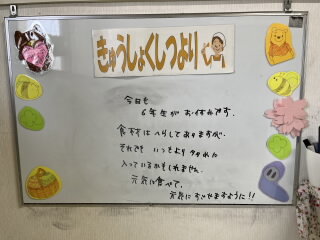 きゅうしょくしつより
今日も
6年生がおやすみです。
食材はへらしてありますが、
それでも いつもより 多めに
入っているかもしれません。
元気に食べて、
元気にすごせますように!!